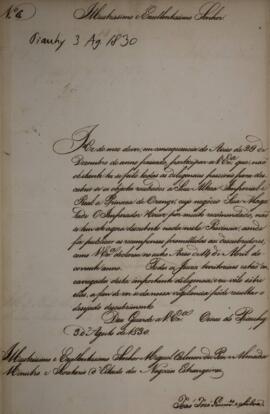 N.º 6
Illustrissimo e Excellentissimo Senhor
Piauhy 3 Ag 1830
He do meu dever, em consequencia do Aviso de 29 de
Dezembro do anno passado, participar a V Ex.ª que, não
obstante ter-se feito todas as deligencias possiveis para des-
cobrir-se os objectos roubados a Sua Alteza Imperial e
Real a Princeza de Orange, cujo negocio Sua Mages-
tade O Imperador Houve por muito recomendado, não
se tem athe agora descoberto nada nesta Provincia, ainda
fiz publicar as recompensas promettidas aos descobridores,
como V Ex.ª declarou no outro Aviso de 14 de Abril do
corrente anno. Todas as
desta importante deligencia, em vella sobre
elles, a fim de ver se da nossa vigilancia póde resultar o
desejado descobrimento.
Deos Guarde a V Ex.ª Oeiras do Piauhy
3 de Agosto de 1830.
Illustrissimo e Excellentissimo Senhor Miguel Calmon du Pin e Almeida
Ministro e Secretario d'Estado dos Negocios Estrangeiros
João José